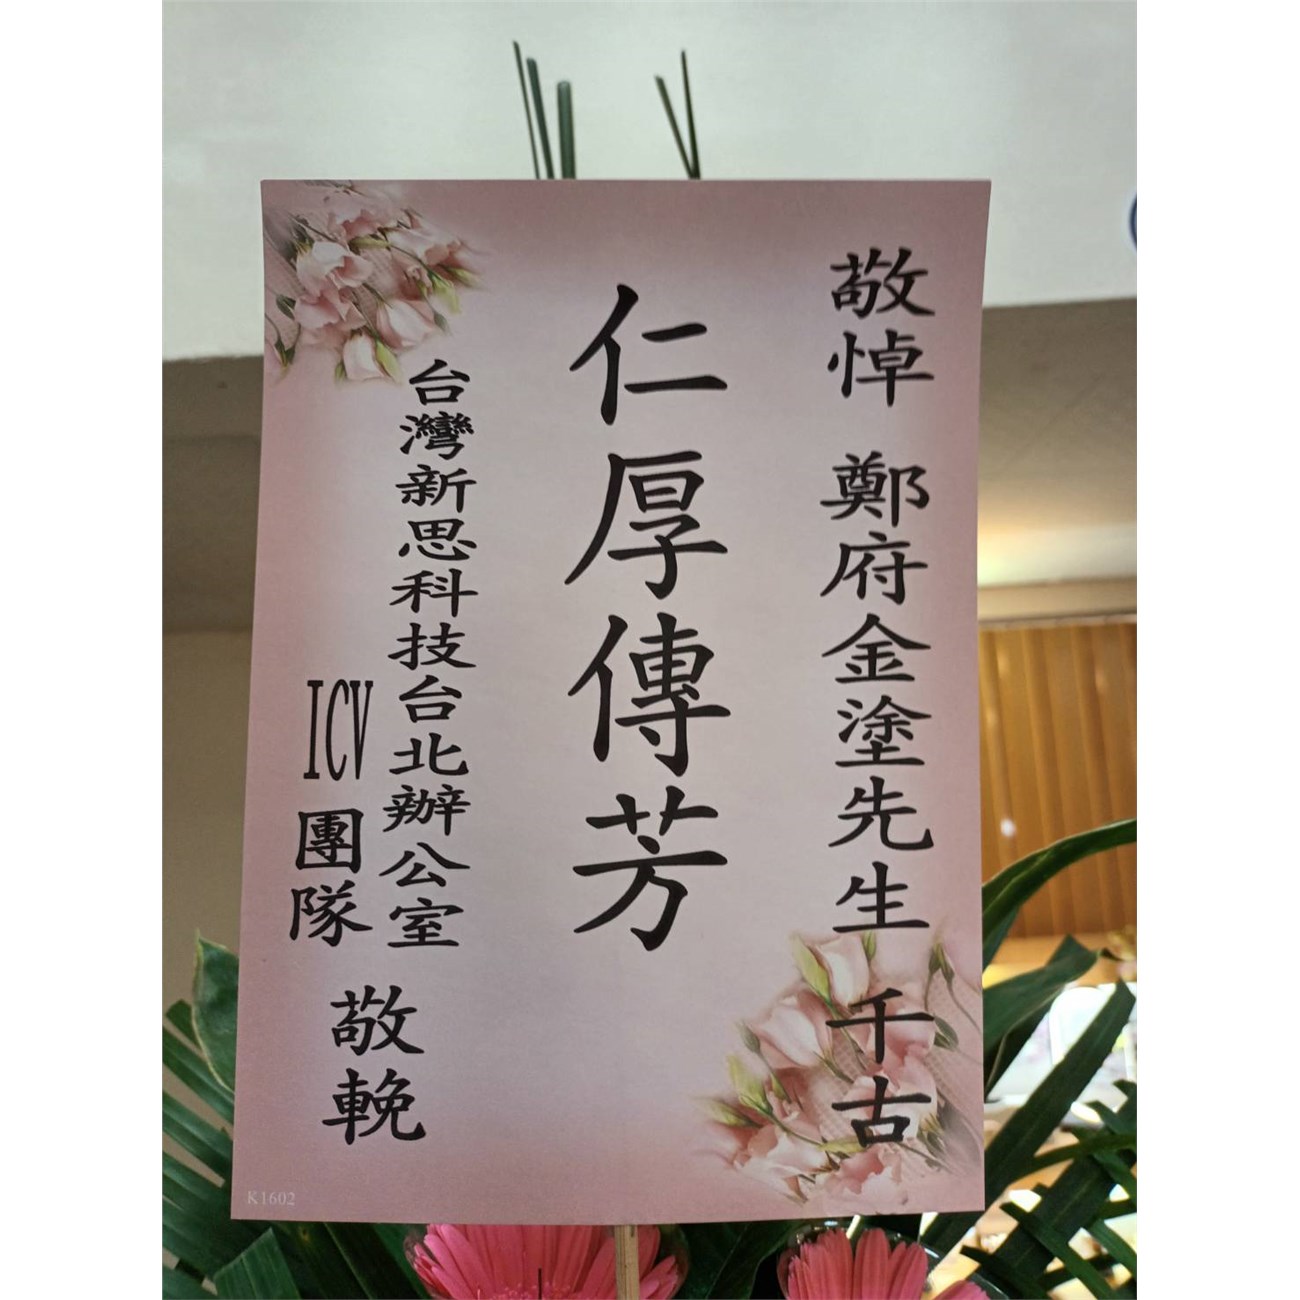 敬悼 鄭府金塗先生 千古
仁厚傳芳
台灣新思科技台北辦公室
ICV團隊
敬輓
K1602